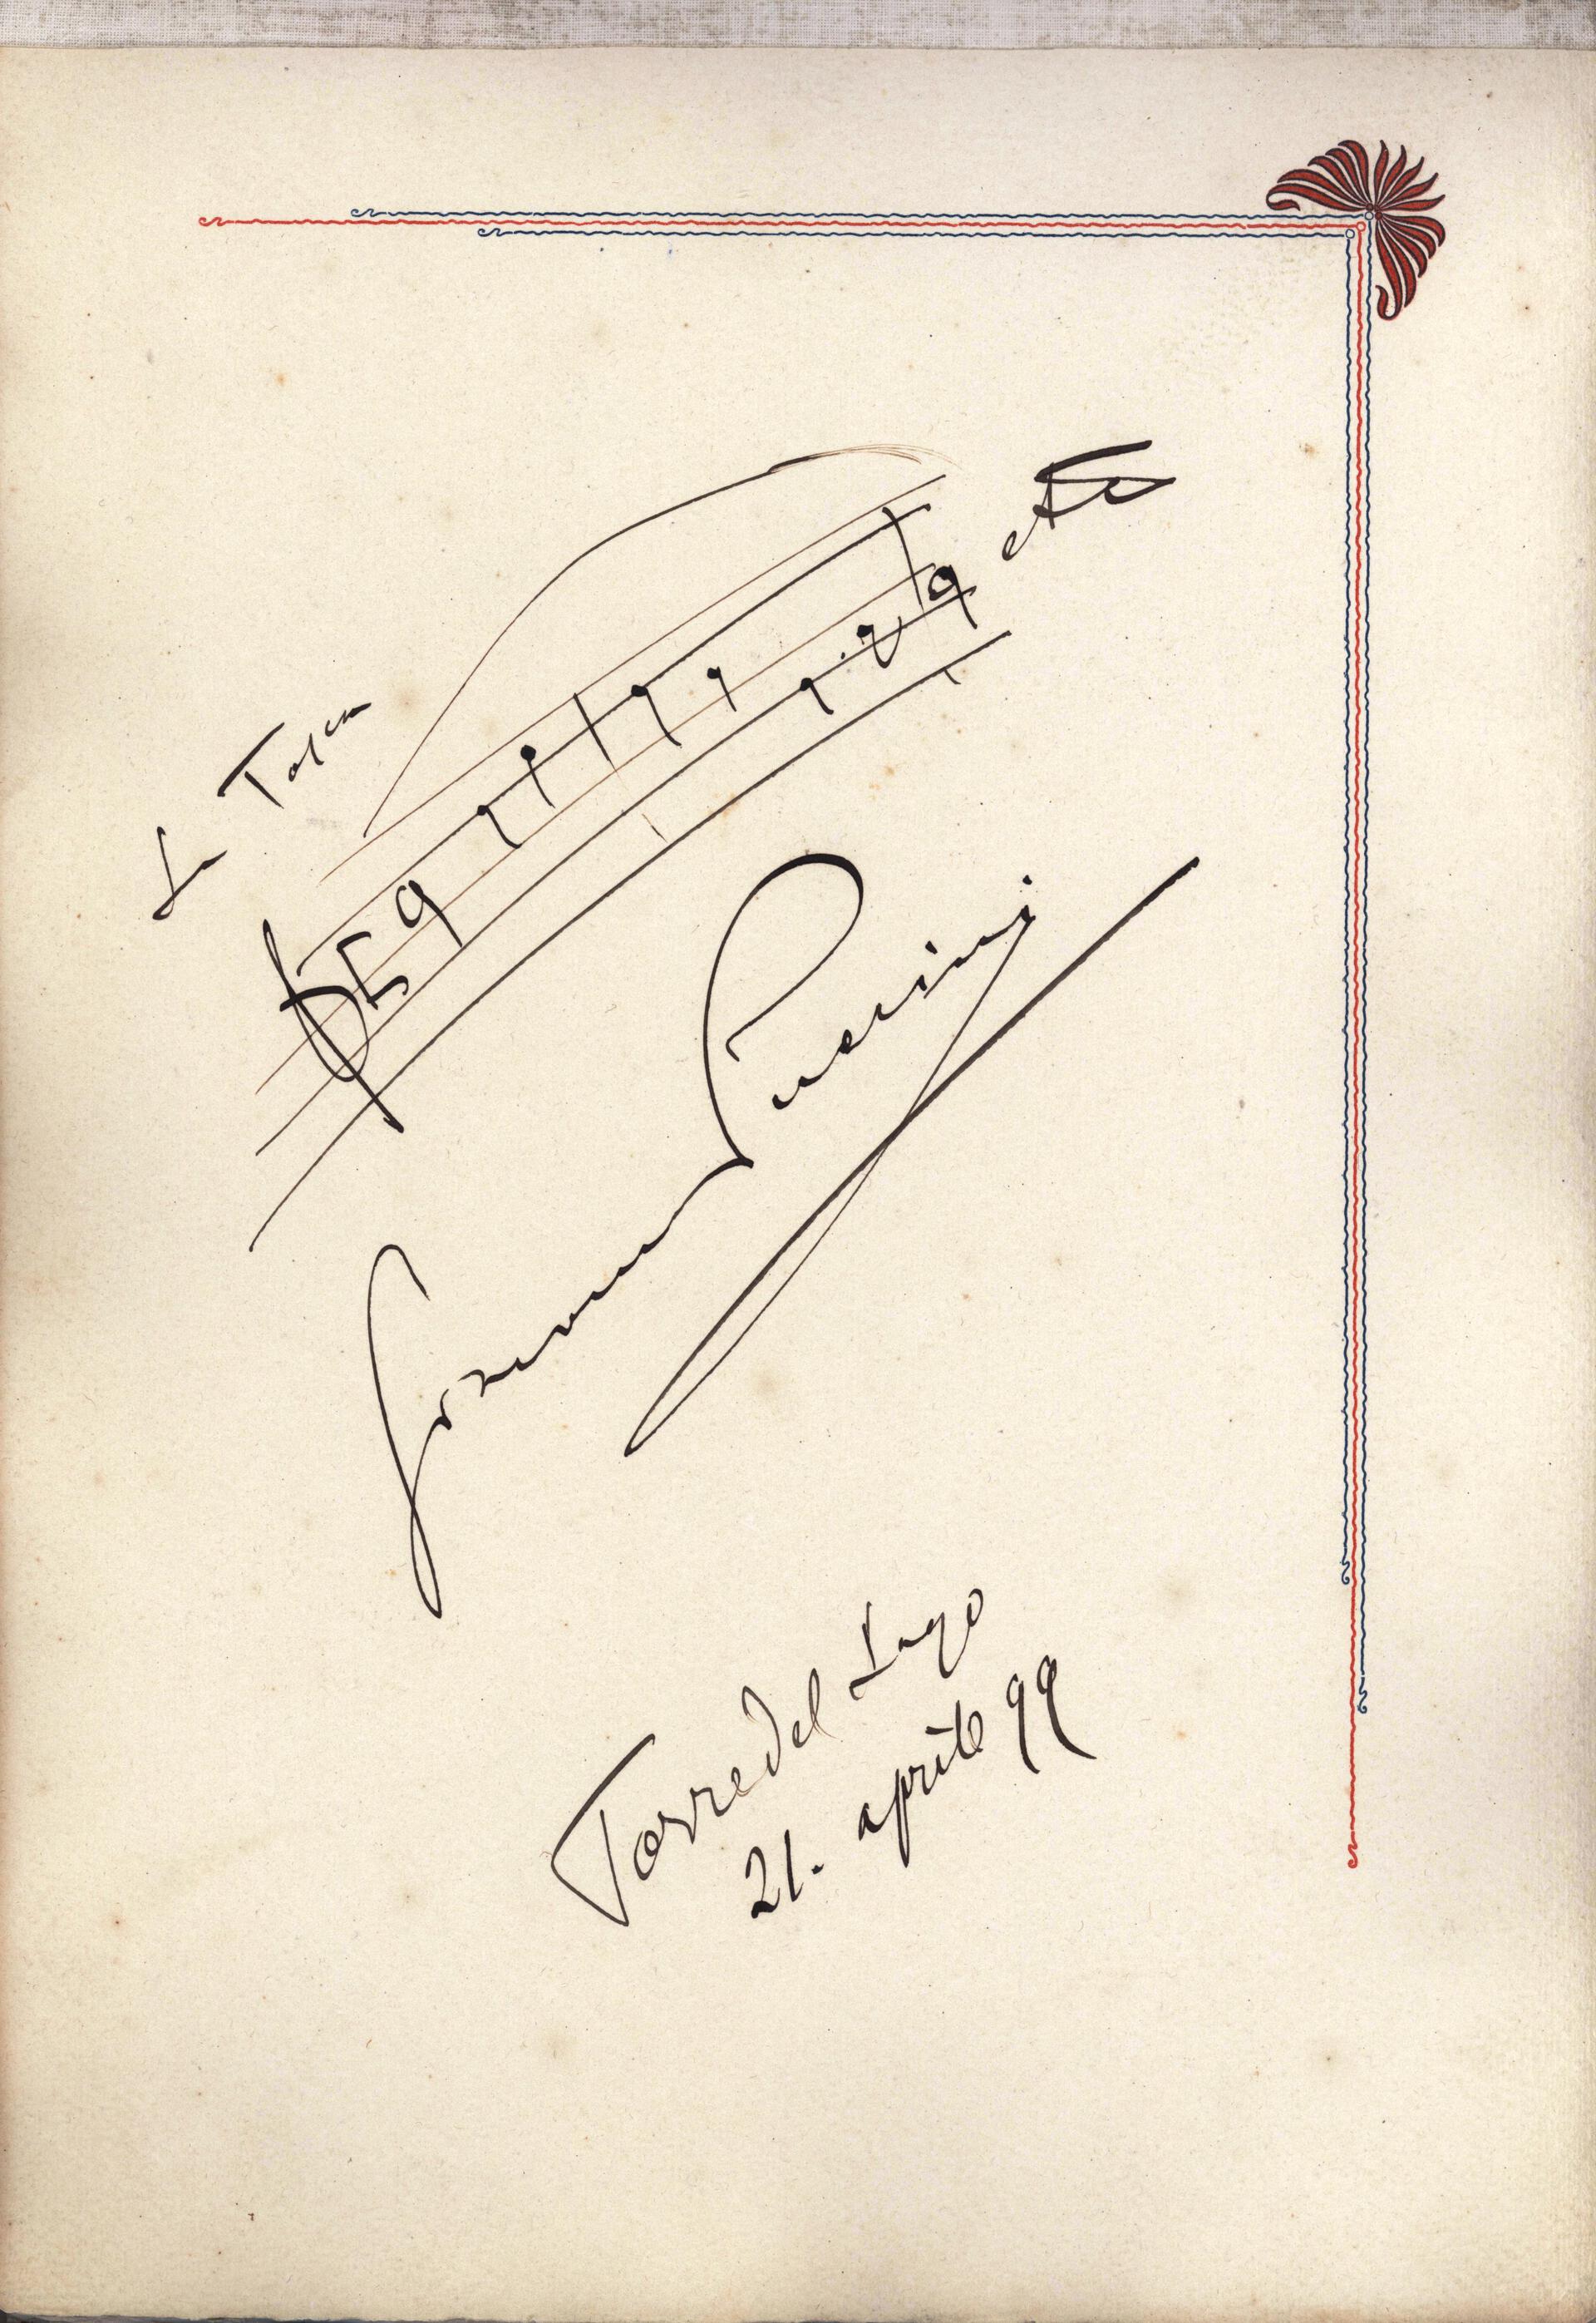 La Tosca
etc
Giacomo Puccini
Torre del Lago
21. aprile 99